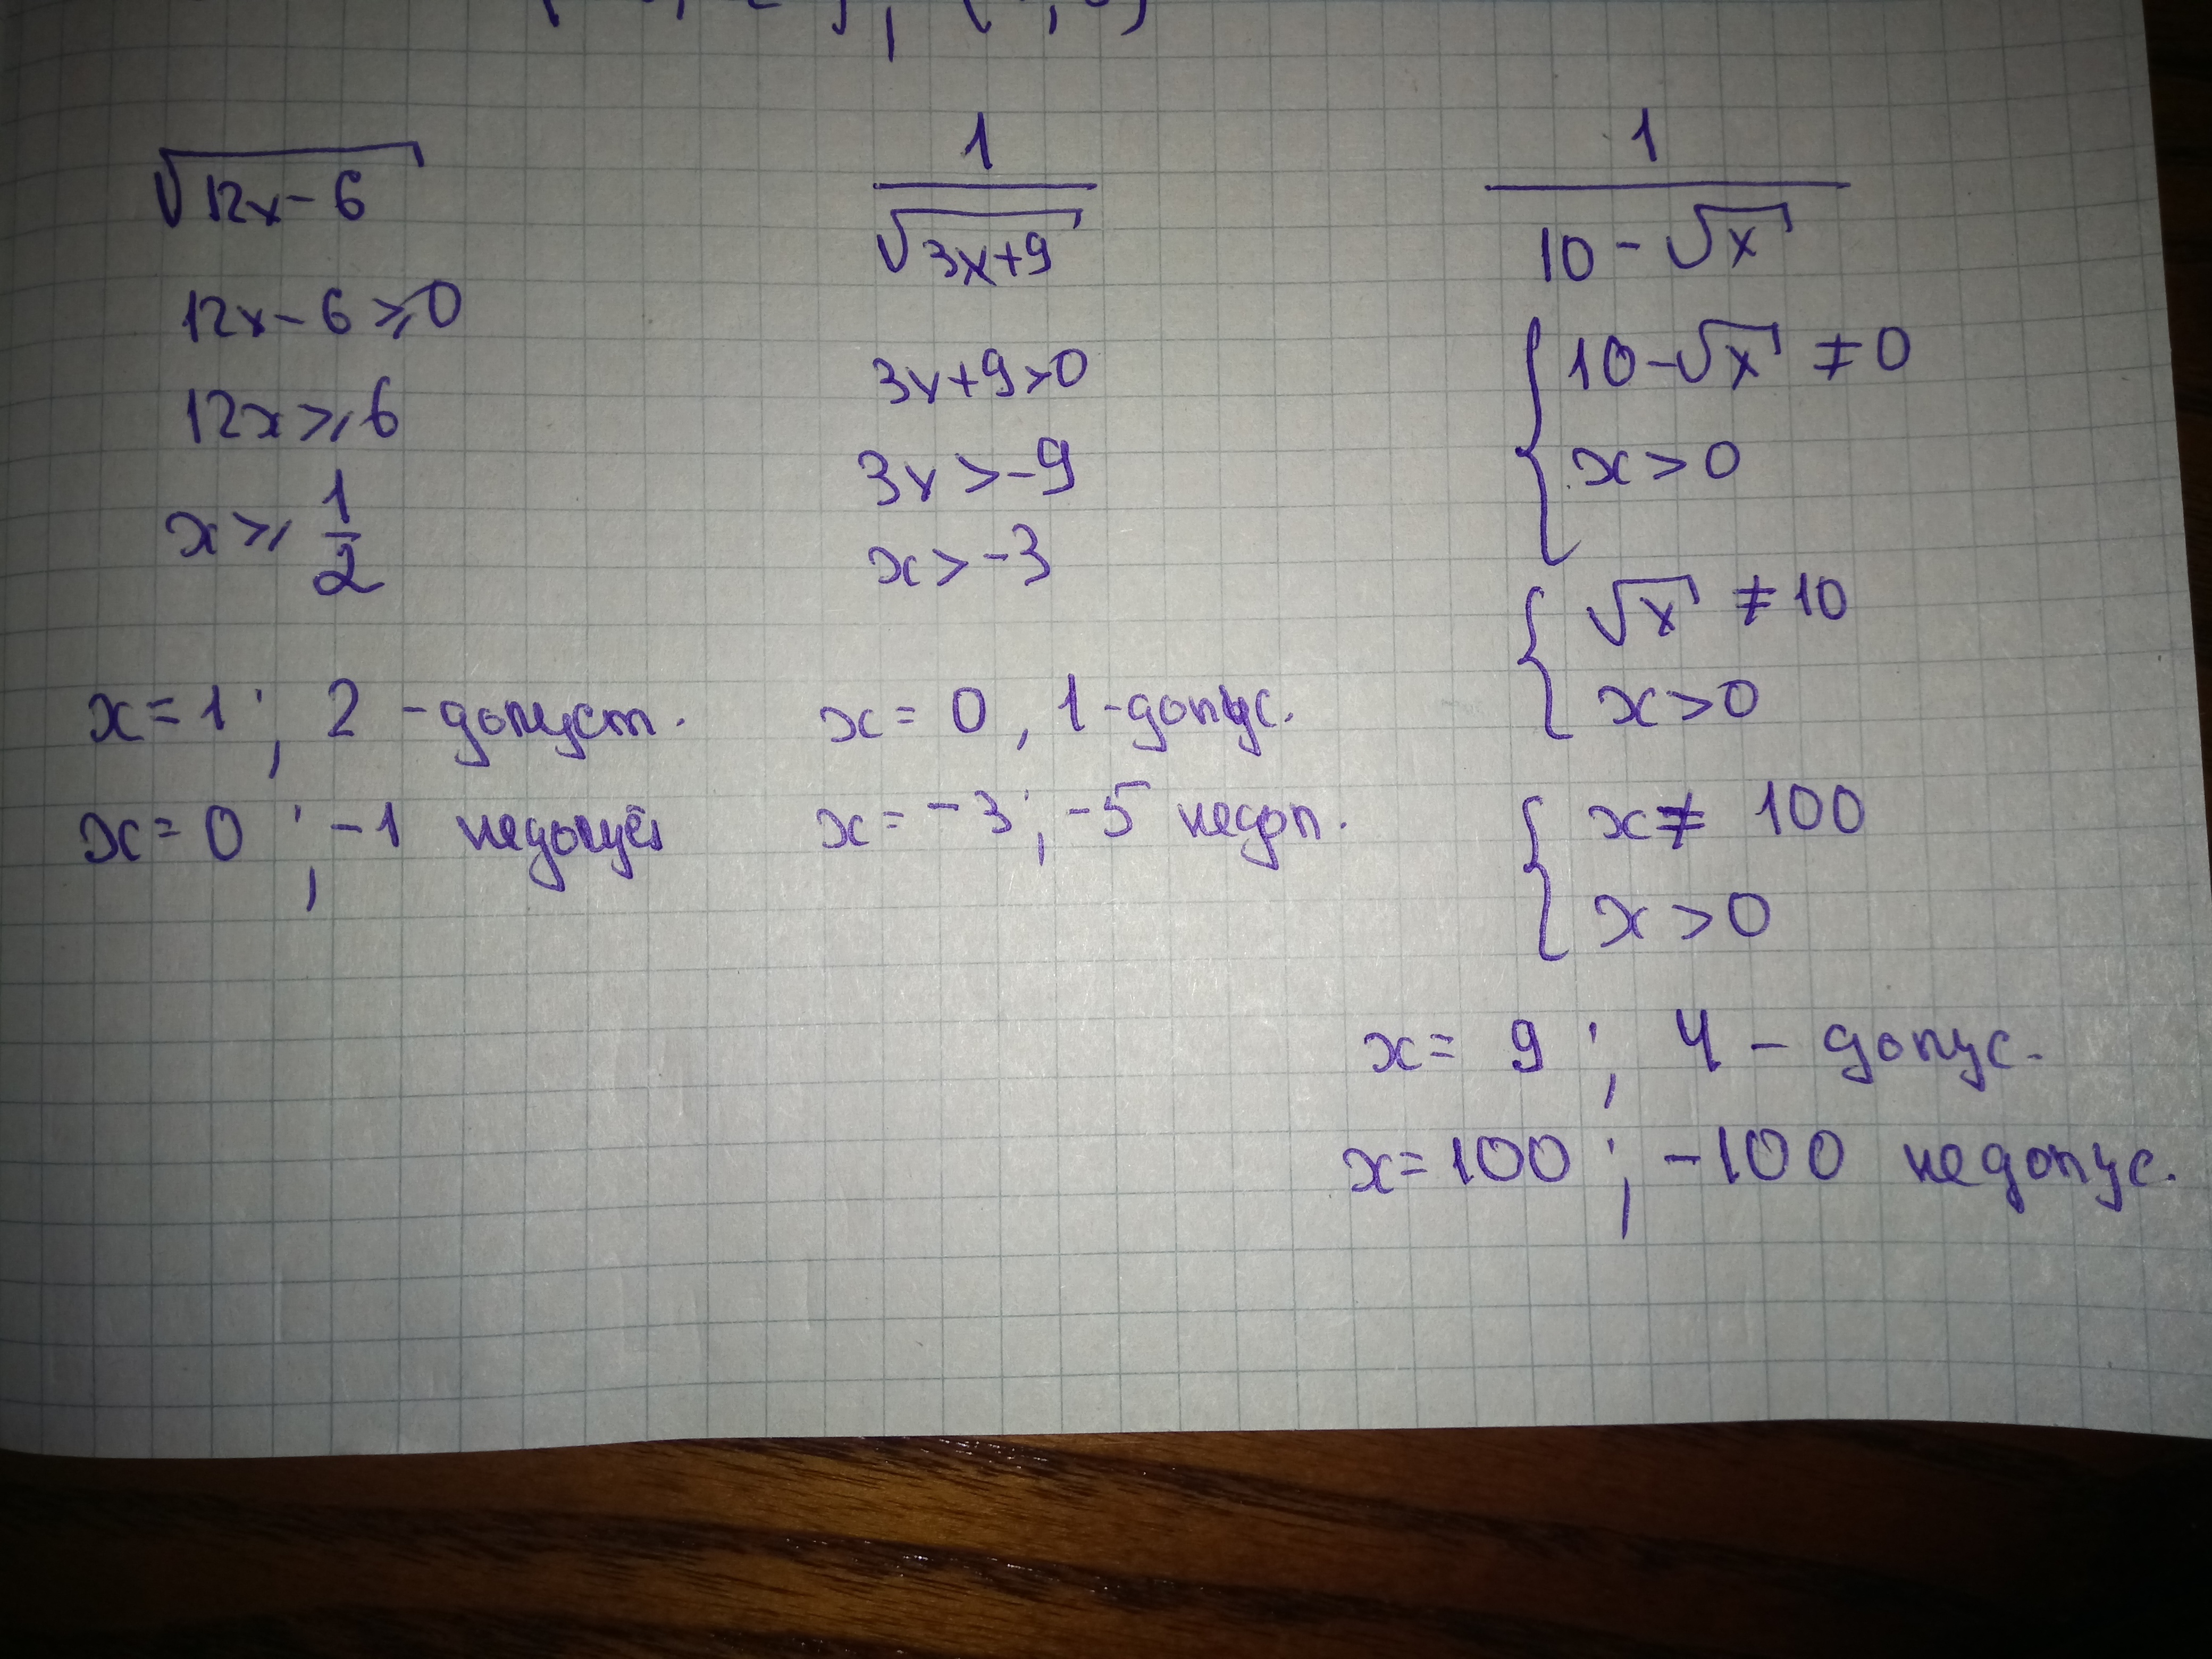 √(12x-6)
12x-6⩾0
12x⩾6
x⩾ 1/2
x=1; 2 -допуст.
x=0; -1 недопус
1/√(3x+9)
3x+9>0
3x>-9
x>-3
x=0, 1-допус.
x=-3; -5 недоп.
1/(10-√x)
{10-√x ≠0
x>0
{√x ≠10
x>0
{x≠ 100
x>0
x= 9; 4 - допус.
x=100; -100 недопус.